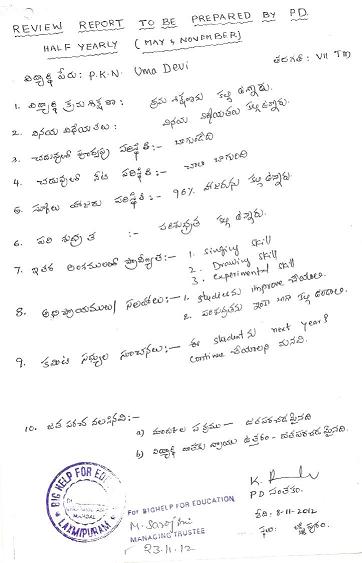 REVIEW REPORT TO BE PREPARED BY PD
HALF YEARLY (MAY & NOVEMBER)
విద్యార్థి పేరు: P.K.N. Uma Devi తరగతి: VII TM
1. విద్యార్థి క్రమశిక్షణ: క్రమ శిక్షణ కల్గి ఉన్నారు.
2. వినయ విధేయతలు: వినయ విధేయతలు కల్గి ఉన్నారు.
3. చదువులో పూర్వపు పరిస్థితి:- బాగుండేది
4. చదువులో నేటి పరిస్థితి:- చాలా బాగుంది
5. స్కూలు హాజరు పరిస్థితి:- 96% హాజరును కల్గి ఉన్నారు.
6. పరిశుభ్రత :- పరిశుభ్రత కల్గి ఉన్నారు.
7. ఇతర అంశములలో ప్రావీణ్యత:- 1. Singing skill
2. Drawing skill
3. experimental skill
8. అభిప్రాయములు/సలహాలు:- 1. studies ను improve చేయాలి.
2. పరిశుభ్రతను ఇంకా బాగా కల్గి ఉండాలి.
9. కమిటీ సభ్యుల సూచనలు:- ఈ student ను next year కి
continue చేయాలని మనవి.
10. జత పరచ వలసినవి:-
a) మార్కుల పత్రము - జతపరచడమైనది
b) విద్యార్థి జాతకు వ్రాయు ఉత్తరం - జతపరచడమైనది
BIG HELP FOR ED
LAXMIPURAM
For BIGHELP FOR EDUCATION
MANAGING TRUSTEE
23.11.12
PD సంతకం.
తేది: 8-11-2012
స్థలం: